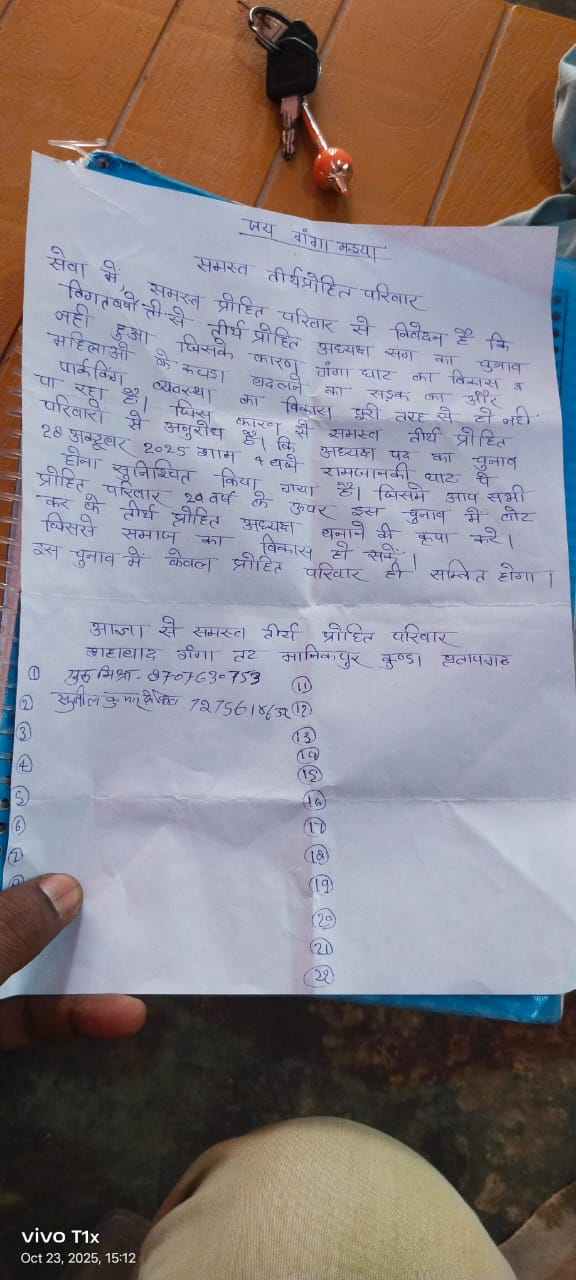 जय गंगा मइया
समस्त तीर्थप्रोहित परिवार
सेवा में, समस्त प्रोहित परिवार से विवेदन है कि
विगतवर्षो से तीर्थ प्रोहित अध्यक्ष संग का चुनाव
नही हुआ जिसके कारण गंगा घाट का विकास व
महिलाओ के कपडा बदलने का सड़क का और
पार्ककिंग व्यवस्था का विकास पुरी तरह से हो नही
पा रहा है। जिस कारण से समस्त तीर्थ प्रोहित
परिवारो से अनुरोध है। कि अध्यक्ष पद का चुनाव
28 अक्टूबर 2025 शाम 4 बजे रामजानकी घाट पे
होना सुनिश्चित किया गया है। जिसमे आप सभी
प्रोहित परिवार 20 वर्ष के ऊपर इस चुनाव मे वोट
कर के तीर्थ प्रोहित अध्यक्ष बनाने की कृपा करे।
जिससे समाज का विकास हो सकें।
इस चुनाव में केवल प्रोहित परिवार ही होगा।
आज्ञा से समस्त तीर्थ प्रोहित परिवार
शहाबाद गंगा तट मानिकपुर कुण्डा प्रतापगढ
① मिश्रा- 8707630753
② सुनील कुमार
③
④
⑤
⑥
⑦
⑪
⑫
⑬
⑭
⑮
⑯
⑰
⑱
⑲
⑳
㉑
㉒
vivo T1x
Oct 23, 2025, 15:12